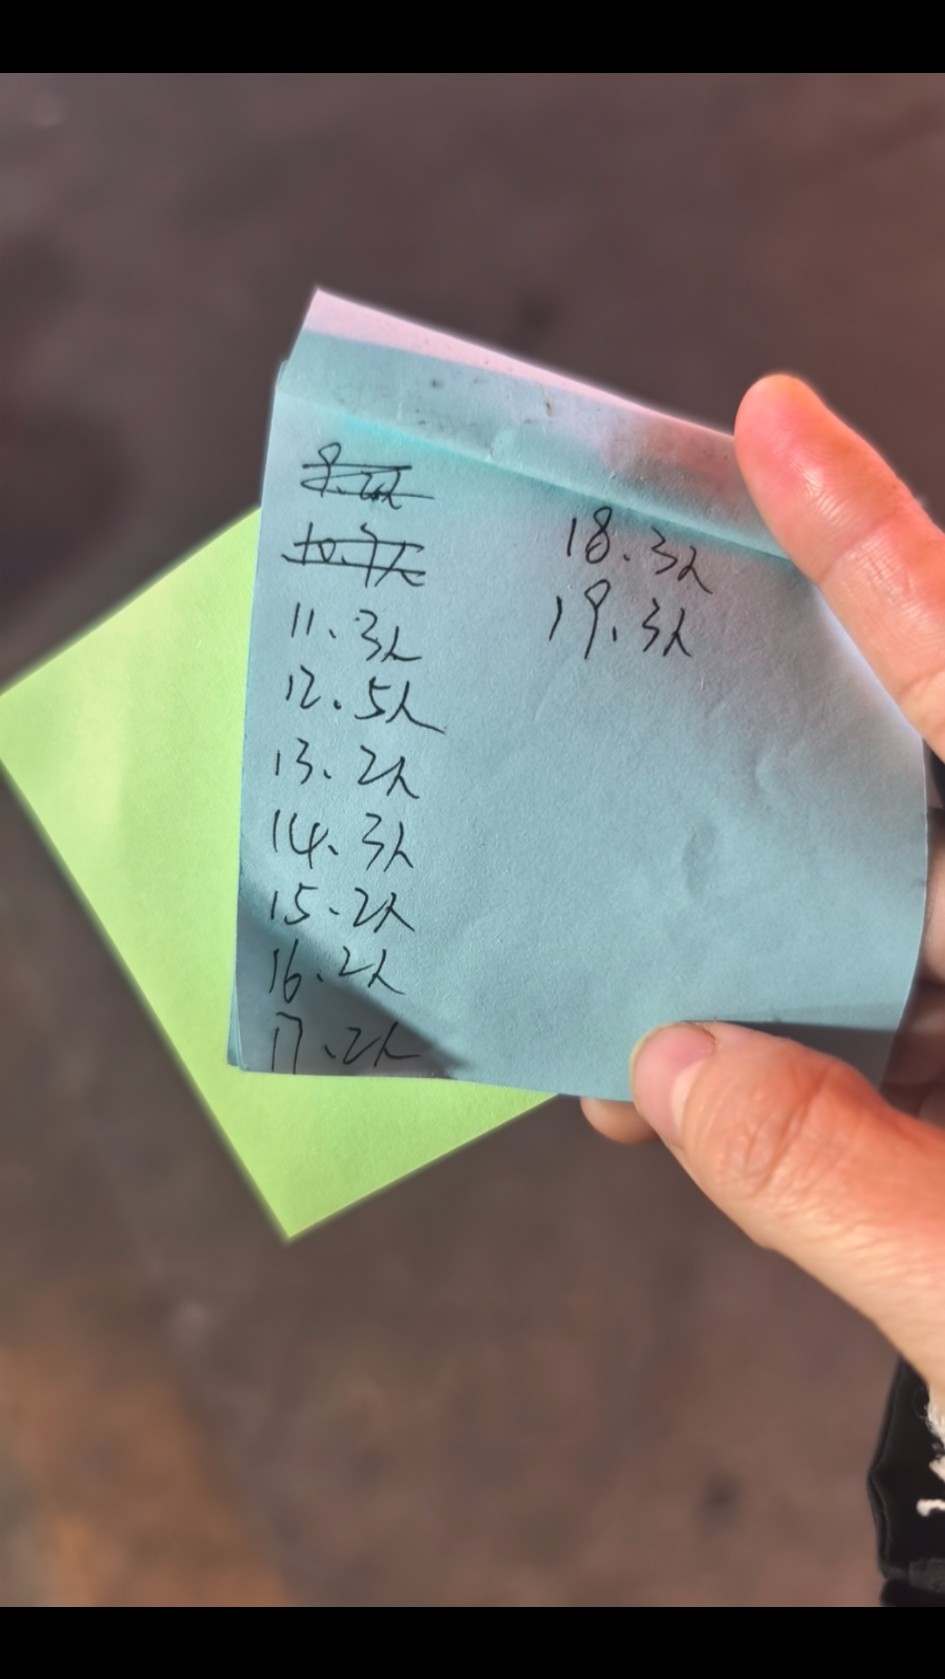 11.3人
12.5人
13.2人
14.3人
15.2人
16.2人
17.2人
18.3人
19.3人